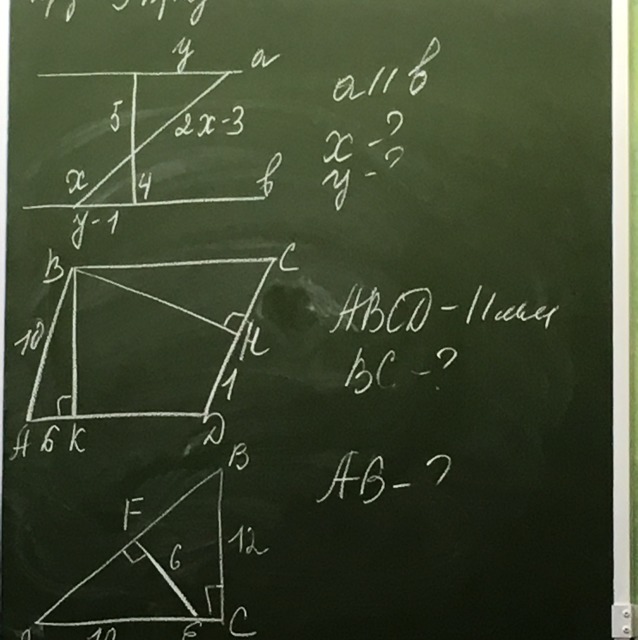 y a
5 2x-3
x 4 b
y-1
a || b
x - ?
y - ?
B C
10 H
1
A 6 K D
ABCD - ||
BC - ?
B
F
6 12
E C
10
AB - ?